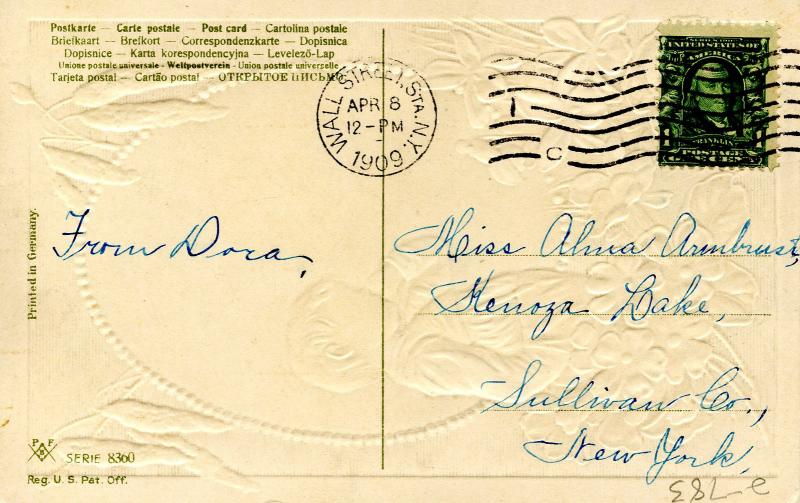 Postkarte — Carte postale — Post card — Cartolina postale
Briefkaart — Brefkort — Correspondenzkarte — Dopisnica
Dopisnice — Karta korespondencyjna — Levelező-Lap
Unione postale universale - Weltpostverein - Union postale universelle
Tarjeta postal — Cartão postal — ОТКРЫТОЕ ПИСЬМО
WALL STREET, STA. N.Y.
APR 8
12-PM
1909
SERIES 1902
UNITED STATES OF
AMERICA
FRANKLIN
POSTAGE
From Dora,
Miss Alma Armbrust,
Kenoza Lake,
Sullivan Co.,
New York,
Printed in Germany.
P F B
SERIE 8360
Reg. U. S. Pat. Off.